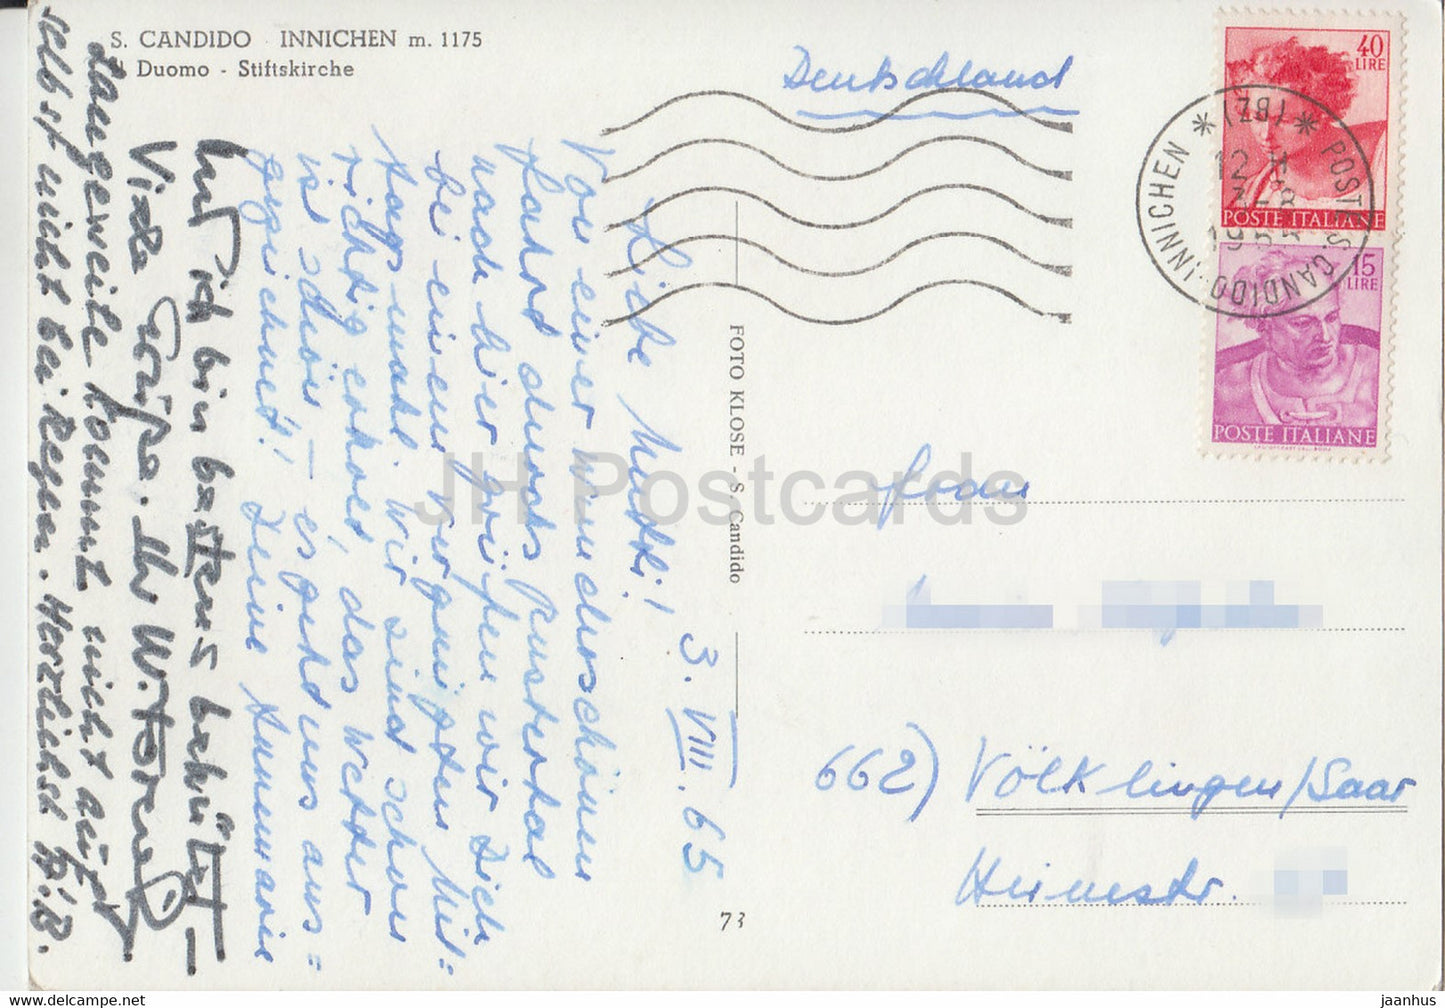 S. CANDIDO · INNICHEN m. 1175
Il Duomo - Stiftskirche
Deutschland
40
LIRE
POSTE ITALIANE
15
LIRE
POSTE ITALIANE
POSTE S. CANDIDO · INNICHEN * (BZ) *
12
3.VIII.65
Liebe Mutti!
Von einer wunderschönen
Fahrt durchs Pustertal
nach hier grüßen wir Dich
bei einem vergnügten Mit=
tagsmahl. Wir sind schon
richtig erholt, das Wetter
ist schön – es geht uns aus=
gezeichnet! Deine Annemarie
Und ich bin bestens behütet –
Viele Grüße. Ihr W.
Langeweile kommt nicht auf,
selbst nicht bei Regen. Herzlichst
FOTO KLOSE - S. Candido
73
Frau
662) Völklingen/Saar
JH Postcards
https://www.delcampe.net
jaanhus